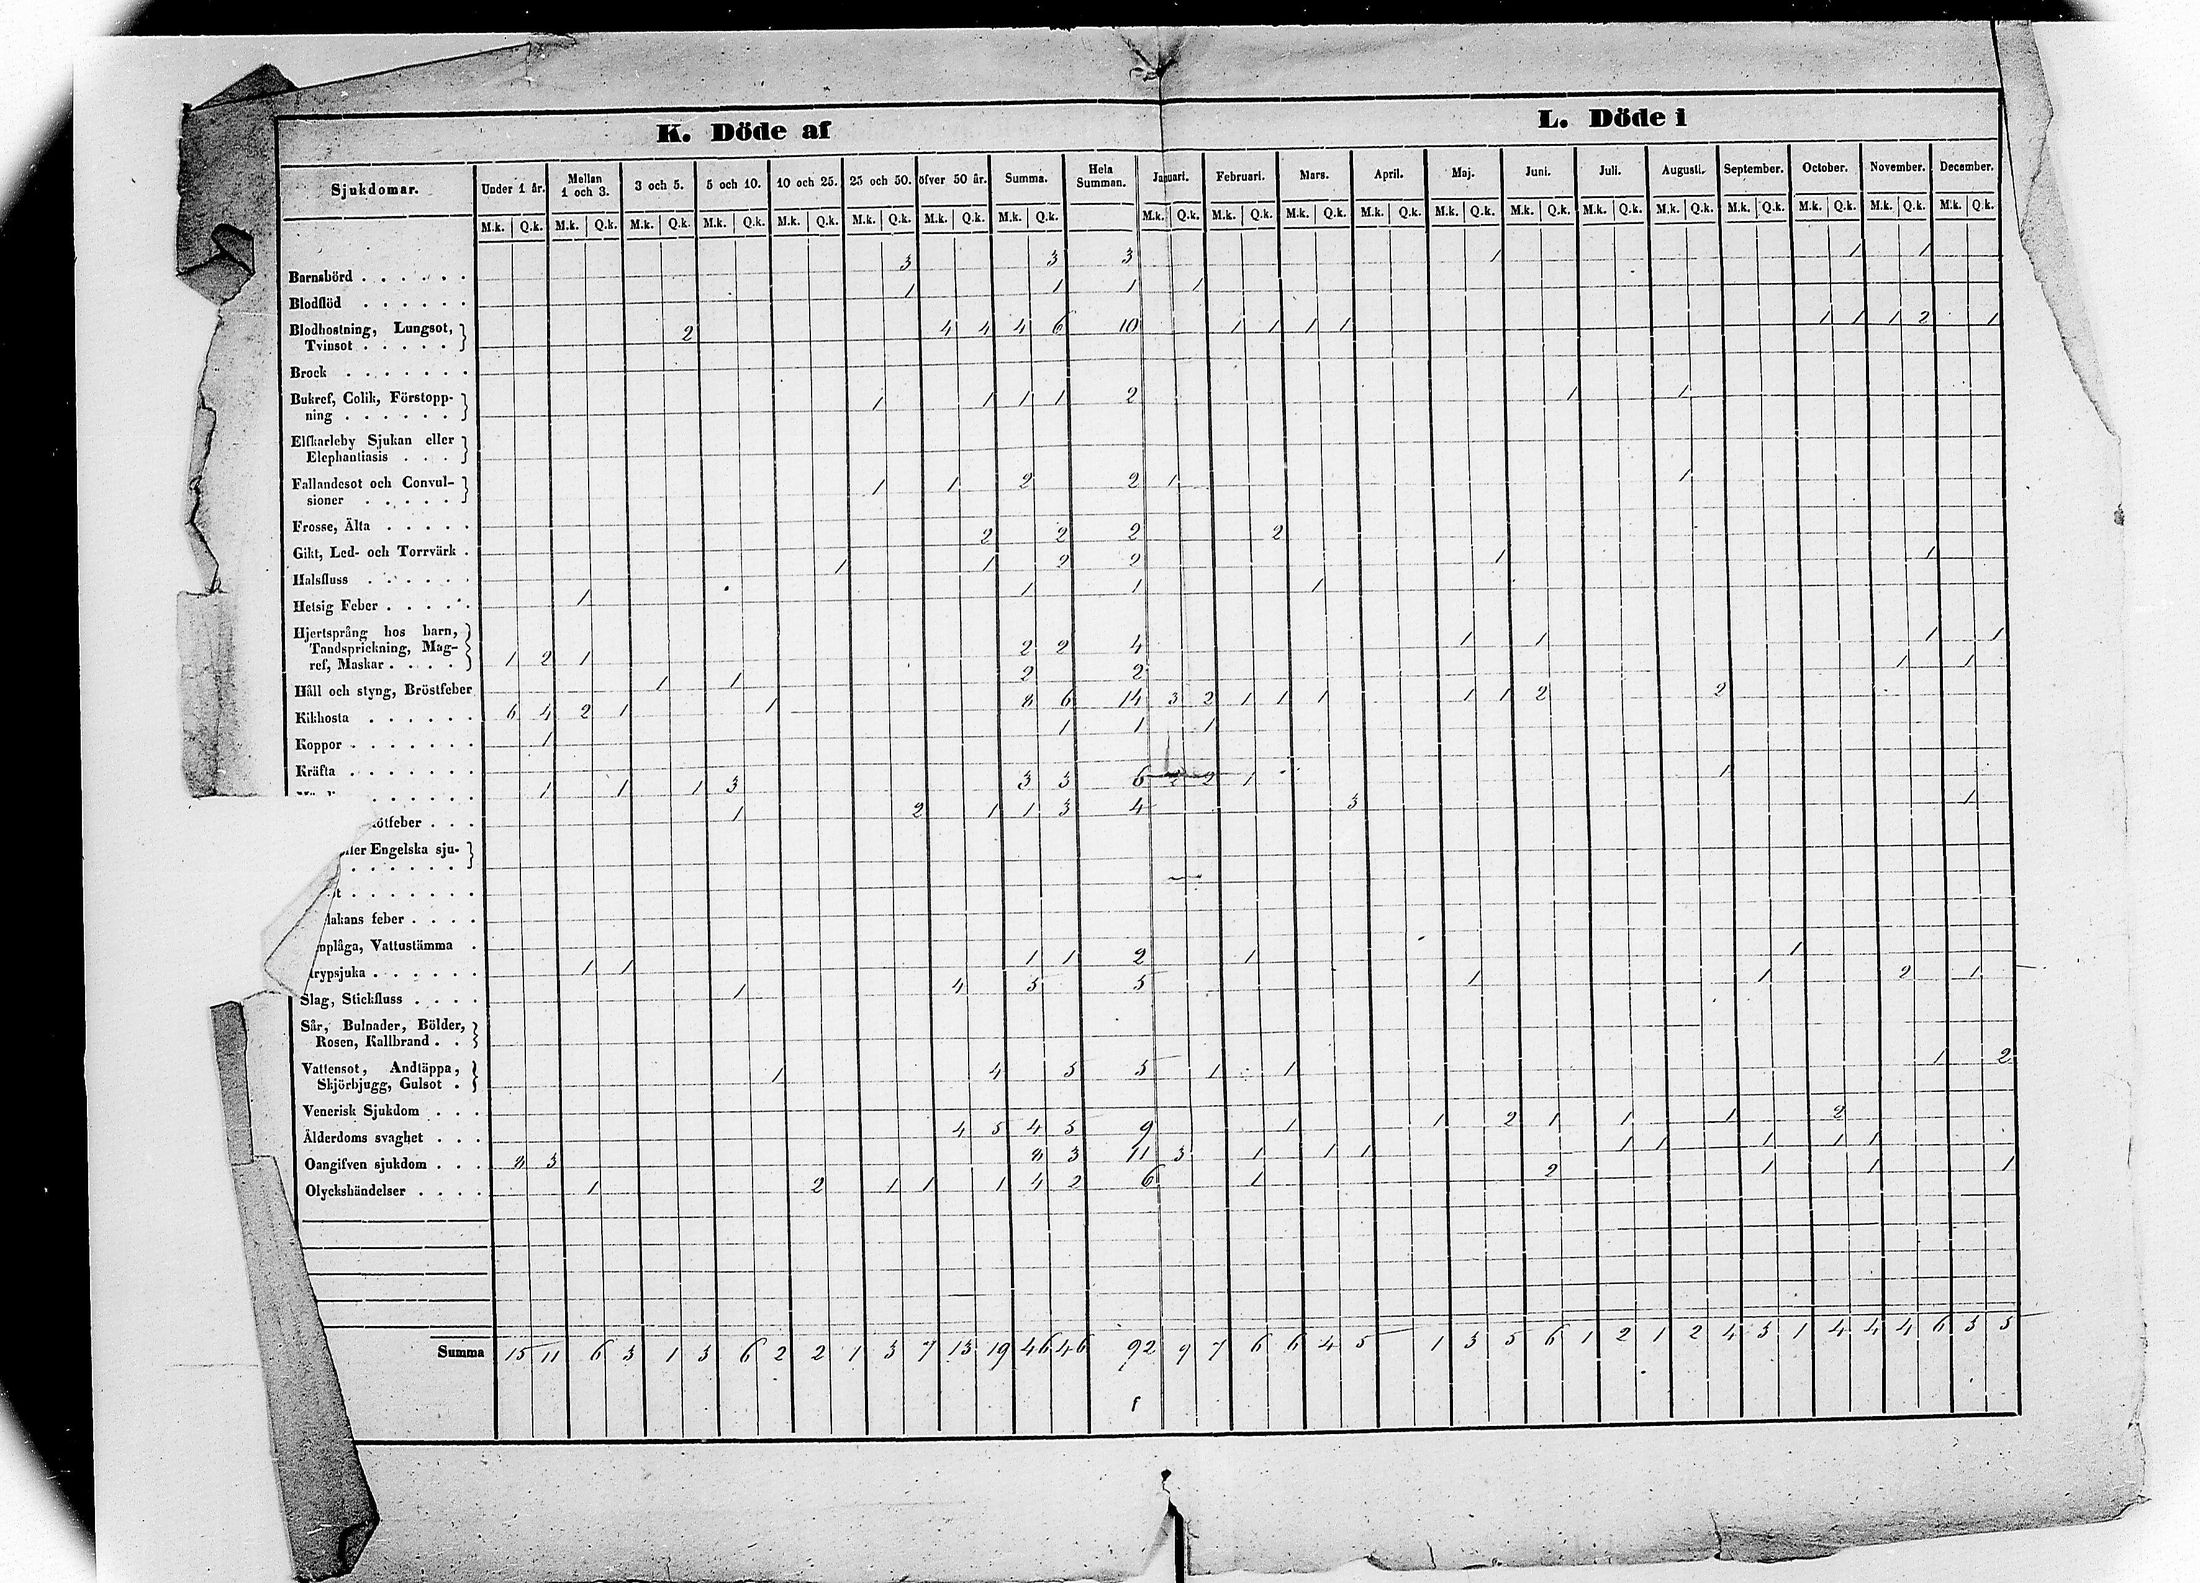 K. Döde af L. Döde i
Sjukdomar. Under 1 år. Mellan 1 och 3. 3 och 5. 5 och 10. 10 och 25. 25 och 50. öfver 50 år. Summa. Hela Summan. Januari. Februari. Mars. April. Maj. Juni. Juli. Augusti. September. October. November. December.
M.k. Q.k. M.k. Q.k. M.k. Q.k. M.k. Q.k. M.k. Q.k. M.k. Q.k. M.k. Q.k. M.k. Q.k. M.k. Q.k. M.k. Q.k. M.k. Q.k. M.k. Q.k. M.k. Q.k. M.k. Q.k. M.k. Q.k. M.k. Q.k. M.k. Q.k. M.k. Q.k. M.k. Q.k. M.k. Q.k.
Barnsbörd . . . . . . 3 3 3 1 1 1
Blodflöd . . . . . . 1 1 1 1
Blodhostning, Lungsot,
Tvinsot . . . . . 2 4 4 4 6 10 1 1 1 1 1 1 1 2 1
Brock . . . . . . .
Bukref, Colik, Förstopp-
ning . . . . . . 1 1 1 1 2 1 1
Elfkarleby Sjukan eller
Elephantiasis . . .
Fallandesot och Convul-
sioner . . . . . 1 1 2 2 1 1
Frosse, Älta . . . . .
Gikt, Led- och Torrvärk . 2 2 2 2
Halsfluss . . . . . . 1 1 2 2 1 1
Hetsig Feber . . . . . 1 1 1 1
Hjertsprång hos barn,
Tandsprickning, Mag-
ref, Maskar . . . . 1 2 1 2 2 4 1 1 1 1
Håll och styng, Bröstfeber 1 1 2 2 1 1
Kikhosta . . . . . . 6 4 2 1 1 8 6 14 3 2 1 1 1 1 1 2 2
Koppor . . . . . . . 1 1 1 1
Kräfta . . . . . . .
1 1 1 3 3 3 6 2 2 1 1
ötfeber . . . 1 2 1 1 3 4 3 1
eller Engelska sju-
. . . . . .
t . . . . . . .
lakans feber . . . .
nplåga, Vattustämma .
rypsjuka . . . . . . 1 1 1 1 2 1 1
Slag, Stickfluss . . . . 1 4 5 5 1 1 2 1
Sår, Bulnader, Bölder,
Rosen, Kallbrand . .
Vattensot, Andtäppa,
Skjörbjugg, Gulsot . 1 4 5 5 1 1 1 2
Venerisk Sjukdom . . .
Ålderdoms svaghet . . . 4 5 4 5 9 1 1 2 1 1 1 2
Oangifven sjukdom . . . 8 3 8 3 11 3 1 1 1 1 1 1 1 1
Olyckshändelser . . . . 1 2 1 1 1 4 2 6 1 2 1 1 1
Summa 15 11 6 3 1 3 6 2 2 1 3 7 13 19 46 46 92 9 7 6 6 4 5 1 3 5 6 1 2 1 2 4 3 1 4 4 4 6 3 5